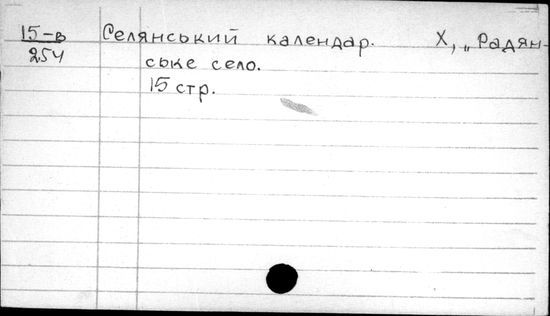 15-в Селянський календар. Х, „Радян-
254 ське село.
15 стр.